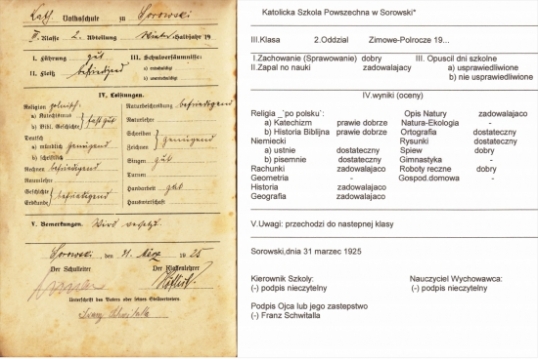 Kath. Volksschule zu Sorowski
III. Klasse 2. Abteilung Winter-Halbjahr 19
I. Führung gut
II. Fleiß befriedigend
III. Schulversäumnisse:
a) entschuldigt
b) unentschuldigt
IV. Leistungen.
Religion polnisch:
a) Katechismus
b) Bibl. Geschichte
fast gut
Deutsch
a) mündlich genügend
b) schriftlich
Rechnen befriedigend
Raumlehre
Geschichte
Erdkunde
befriedigend
Naturbeschreibung befriedigend
Naturlehre
Schreiben
Zeichnen
genügend
Singen gut
Turnen
Handarbeit gut
V. Bemerkungen. Wird versetzt.
Sorowski, den 31. März 1925
Der Schulleiter
Der Klassenlehrer
Unterschrift des Vaters oder seines Stellvertreters
Franz Schwitalla
Katolicka Szkola Powszechna w Sorowski*
III.Klasa 2.Oddzial Zimowe-Polrocze 19...
I.Zachowanie (Sprawowanie) dobry III. Opuscil dni szkolne
II.Zapal no nauki zadowalajacy a) usprawiedliwione
b) nie usprawiedliwione
IV.wyniki (oceny)
Religia _`po polsku`. Opis Natury zadowalajaco
a) Katechizm prawie dobrze Natura-Ekologia -
b) Historia Biblijna prawie dobrze Ortografia dostateczny
Niemiecki Rysunki dostateczny
a) ustnie dostateczny Spiew dobry
b) pisemnie dostateczny Gimnastyka -
Rachunki zadowalajaco Roboty reczne dobry
Geometria - Gospod.domowa -
Historia zadowalajaco
Geografia zadowalajaco
V.Uwagi: przechodzi do nastepnej klasy
Sorowski,dnia 31 marzec 1925
Kierownik Szkoly: Nauczyciel Wychowawca:
(-) podpis nieczytelny (-) podpis nieczytelny
Podpis Ojca lub jego zastepstwo
(-) Franz Schwitalla